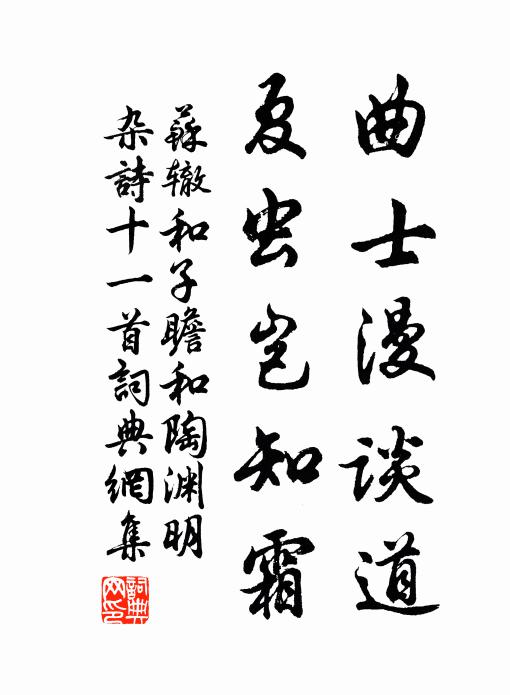 曲士漫谈道
夏虫岂知霜
蘇辙和子瞻和陶渊明
杂詩十一首詞典網集
詞典网印